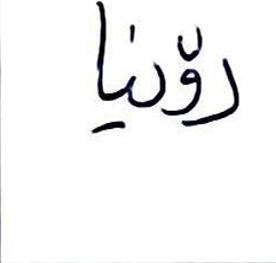 رۆنیا